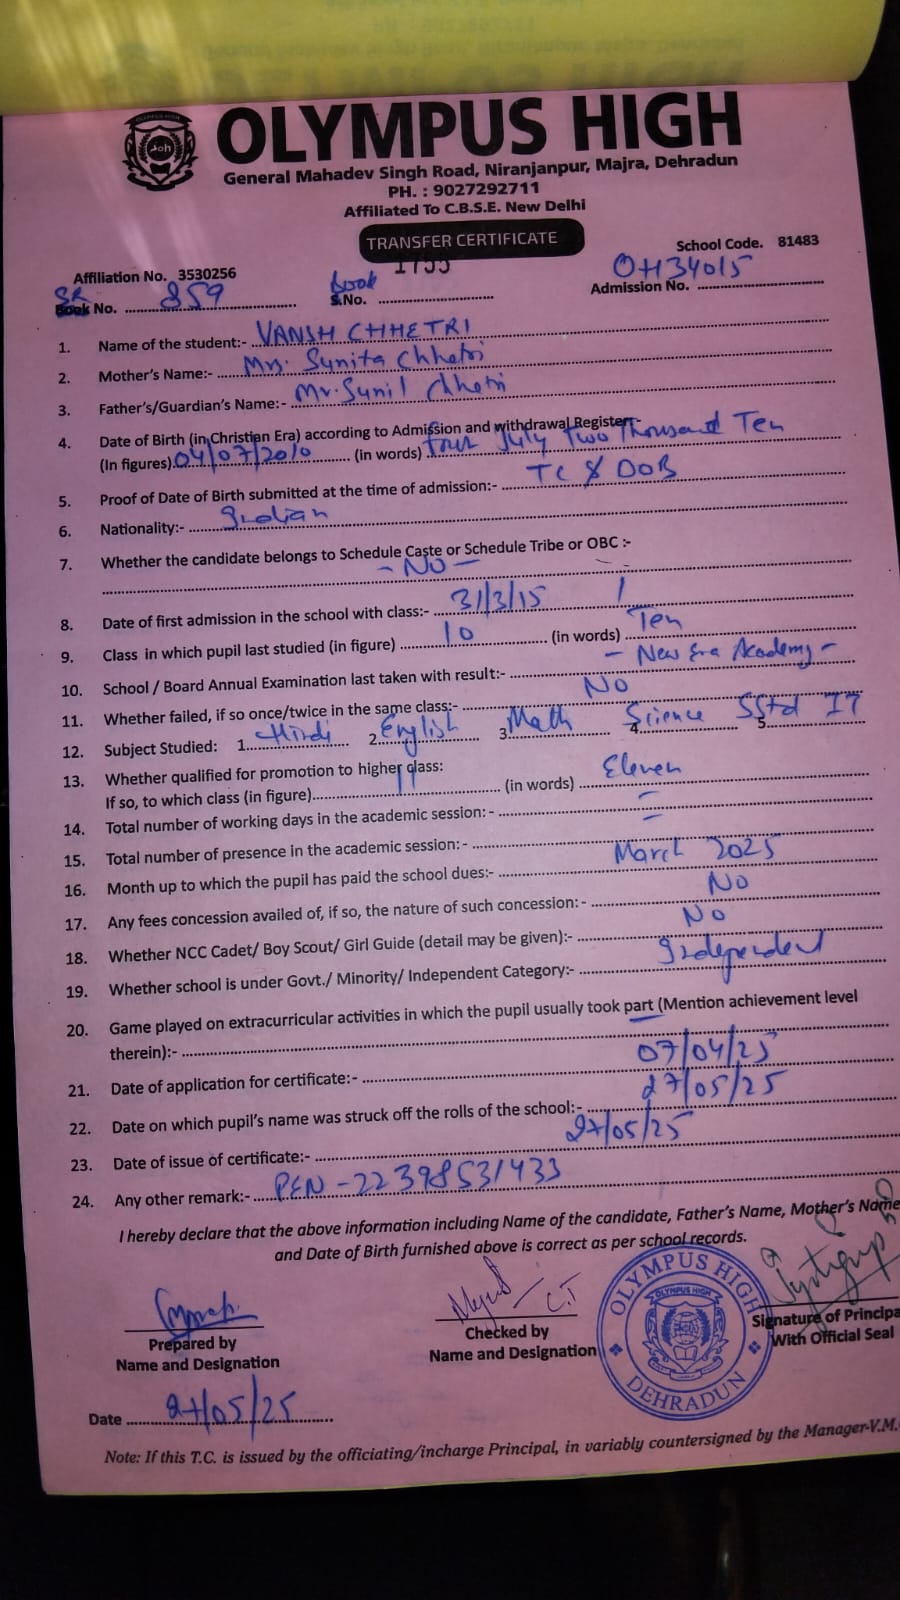 OLYMPUS HIGH
General Mahadev Singh Road, Niranjanpur, Majra, Dehradun
PH. : 9027292711
Affiliated To C.B.S.E. New Delhi
TRANSFER CERTIFICATE
School Code. 81483
Affiliation No. 3530256
SR Book No. 859
Book S.No. 1755
OH34015
Admission No.
1. Name of the student:- VANSH CHHETRI
2. Mother's Name:- Mrs. Sunita Chhetri
3. Father's/Guardian's Name:- Mr. Sunil Chhetri
4. Date of Birth (in Christian Era) according to Admission and withdrawal Register:-
(In figures) 04/07/2010 (in words) Four July Two Thousand Ten
5. Proof of Date of Birth submitted at the time of admission:- TC & DOB
6. Nationality:- Indian
7. Whether the candidate belongs to Schedule Caste or Schedule Tribe or OBC :-
- No -
8. Date of first admission in the school with class:- 31/3/15 I
9. Class in which pupil last studied (in figure) 10 (in words) Ten
10. School / Board Annual Examination last taken with result:- - New Era Academy -
11. Whether failed, if so once/twice in the same class:- No
12. Subject Studied: 1. Hindi 2. English 3. Math 4. Science 5. SStd IT
13. Whether qualified for promotion to higher class:
If so, to which class (in figure) 11 (in words) Eleven
14. Total number of working days in the academic session: - -
15. Total number of presence in the academic session: - -
16. Month up to which the pupil has paid the school dues:- March 2025
17. Any fees concession availed of, if so, the nature of such concession: - No
18. Whether NCC Cadet/ Boy Scout/ Girl Guide (detail may be given):- No
19. Whether school is under Govt./ Minority/ Independent Category:- Independent
20. Game played on extracurricular activities in which the pupil usually took part (Mention achievement level
therein):-
21. Date of application for certificate:- 07/04/25
22. Date on which pupil's name was struck off the rolls of the school:- 27/05/25
23. Date of issue of certificate:- 27/05/25
24. Any other remark:- PEN - 22398531433
I hereby declare that the above information including Name of the candidate, Father's Name, Mother's Name
and Date of Birth furnished above is correct as per school records.
C.T
OLYMPUS HIGH
OLYMPUS HIGH
DEHRADUN
Prepared by
Name and Designation
Checked by
Name and Designation
Signature of Principa
With Official Seal
Date 27/05/25
Note: If this T.C. is issued by the officiating/incharge Principal, in variably countersigned by the Manager-V.M.